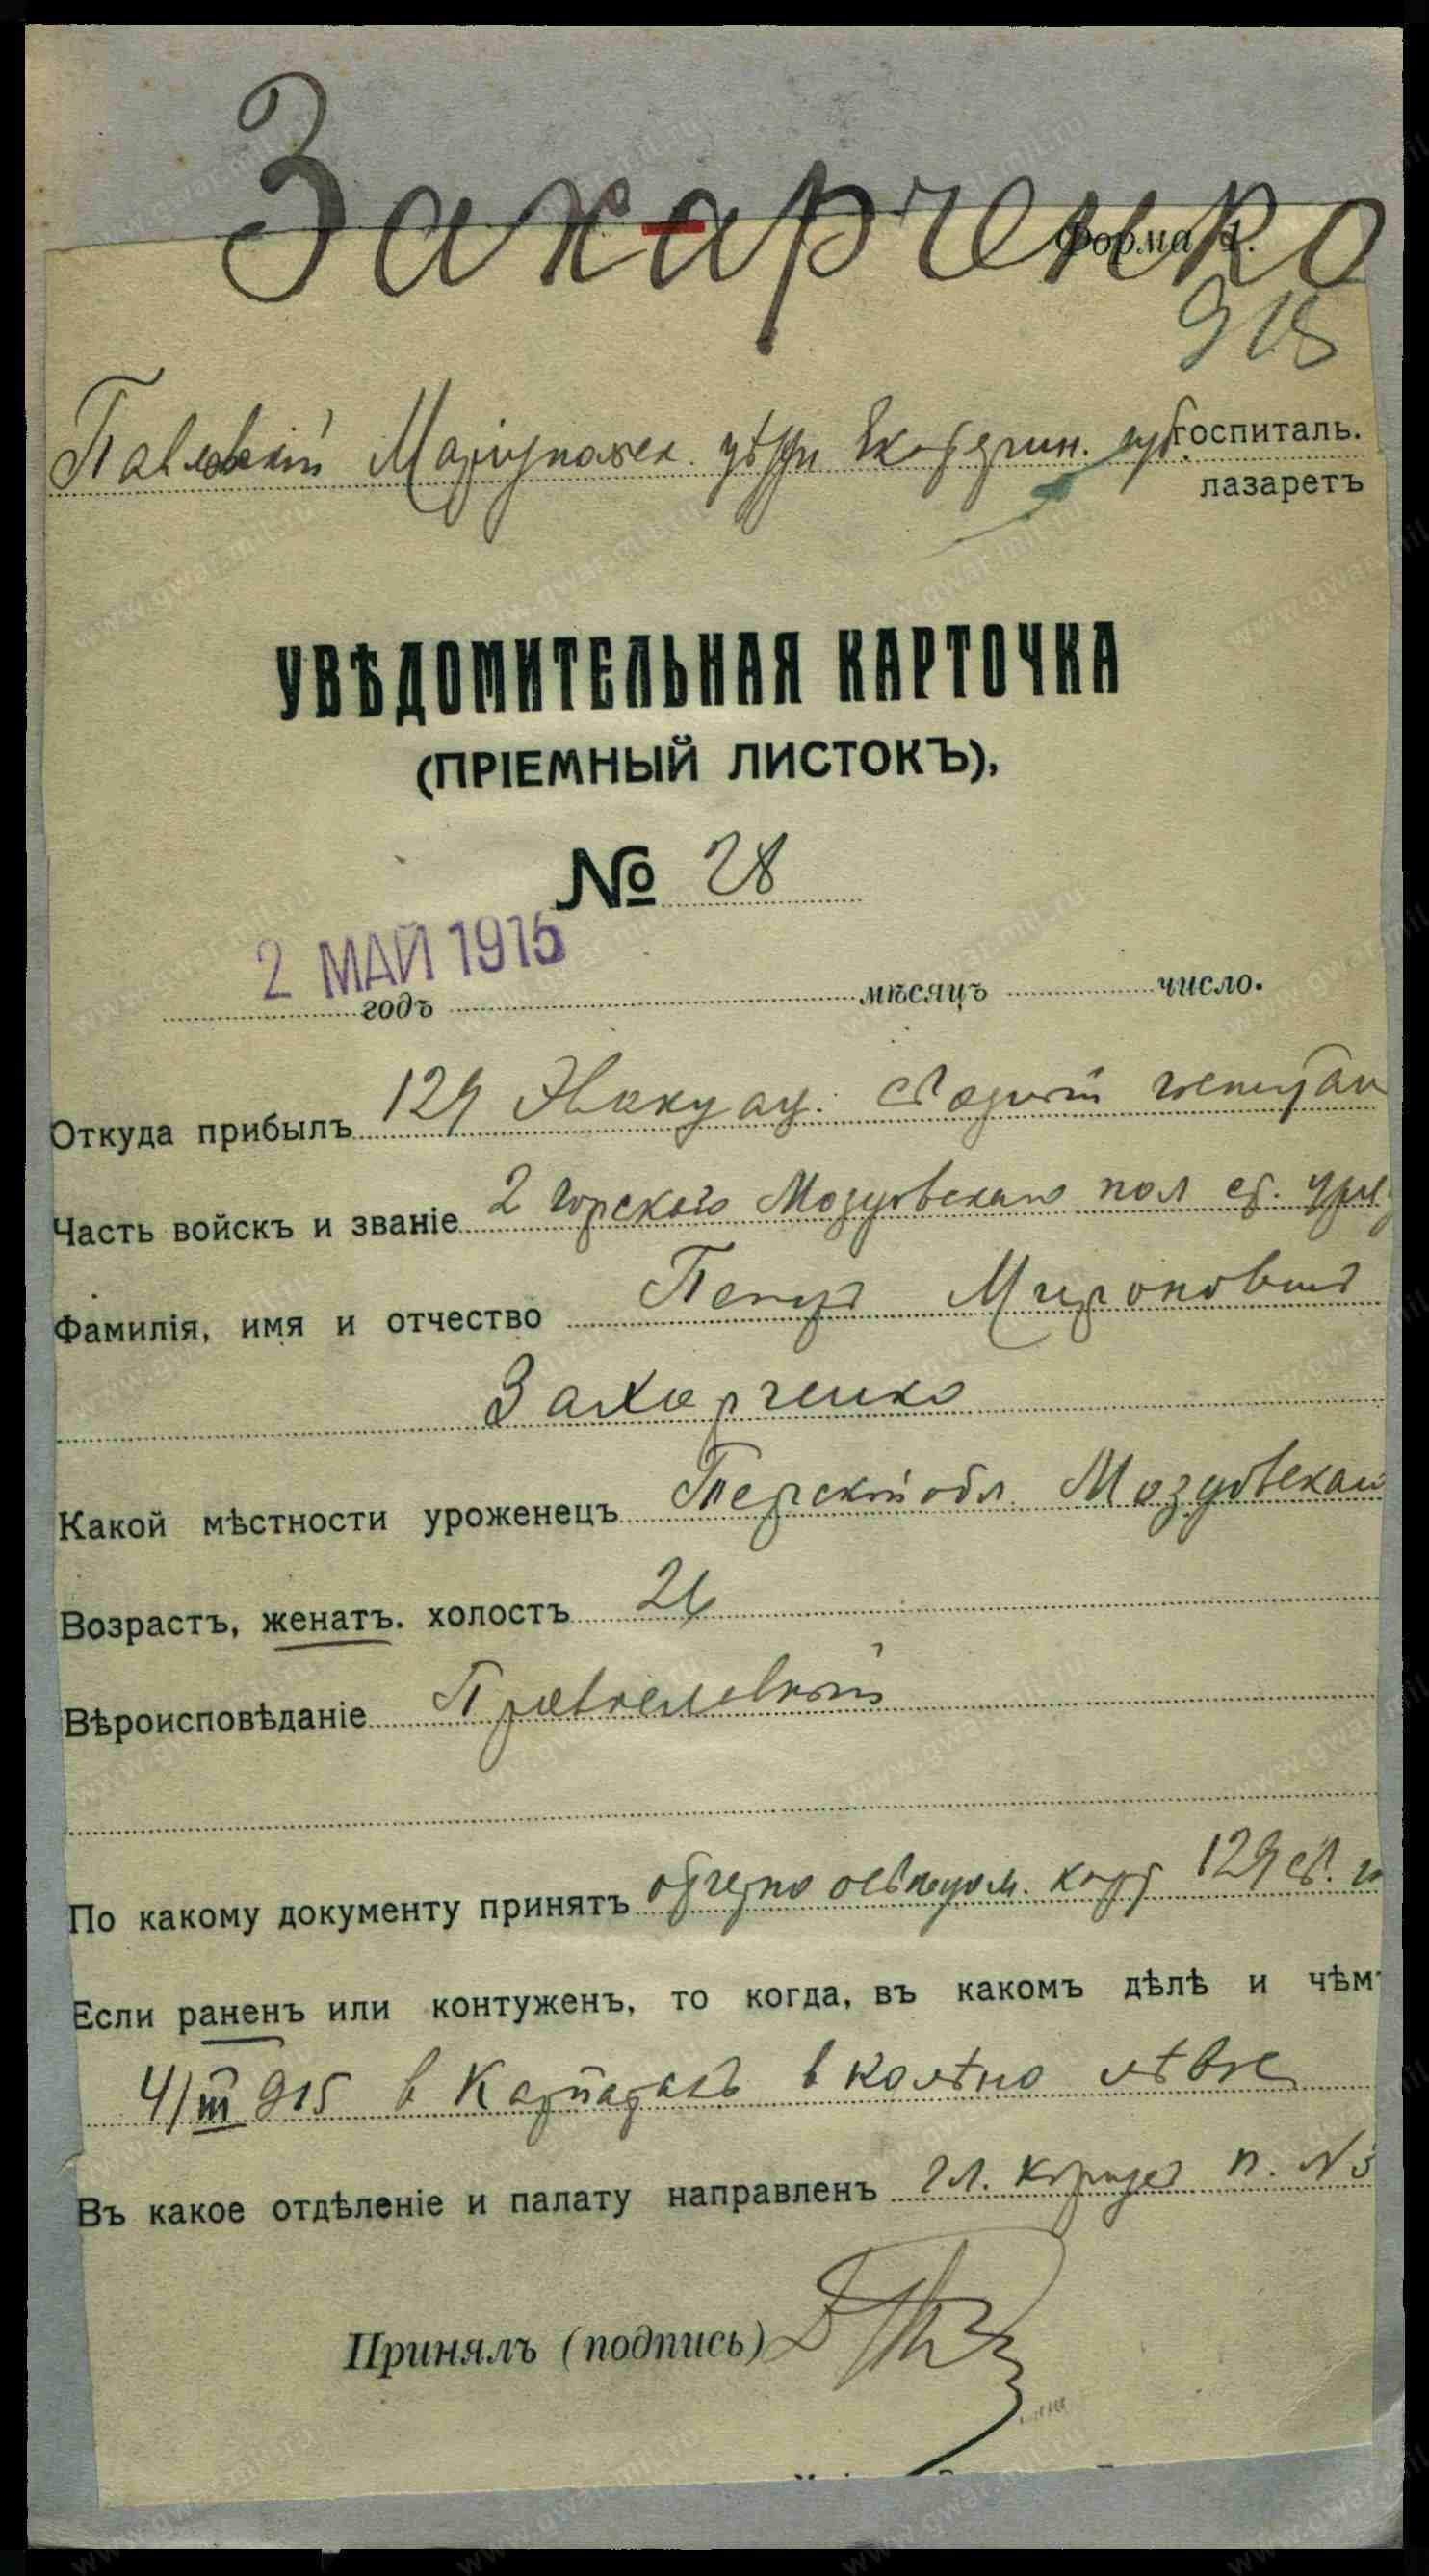 Захарченко
Форма
918
Павловскій Маріупольск. уѣзда Екатерин. губ. госпиталь.
лазаретъ
УВѢДОМИТЕЛЬНАЯ КАРТОЧКА
(ПРІЕМНЫЙ ЛИСТОКЪ),
№ 28
2 МАЙ 1915
годъ мѣсяцъ число.
Откуда прибылъ 129 Эвакуац. Сводный
Часть войскъ и званіе 2 Горского Моздовскаго пол
Фамилія, имя и отчество Петръ Мироновичъ
Захарченко
Какой мѣстности уроженецъ Терской обл. Моздовскаго
Возрастъ, женатъ. холостъ 26
Вѣроисповѣданіе Православный
По какому документу принятъ 129 св. г
Если раненъ или контуженъ, то когда, въ какомъ дѣлѣ и чѣмъ
4/III 915 в Карпатахъ в колѣно лѣвое
Въ какое отдѣленіе и палату направленъ гл. корпусъ п. № 3
Принялъ (подпись)